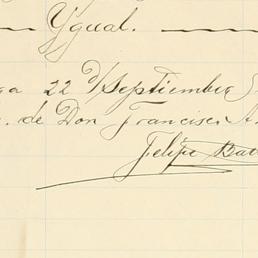 Ygual.
22 d/ Septiembre
de Don Francisco A.
Felipe